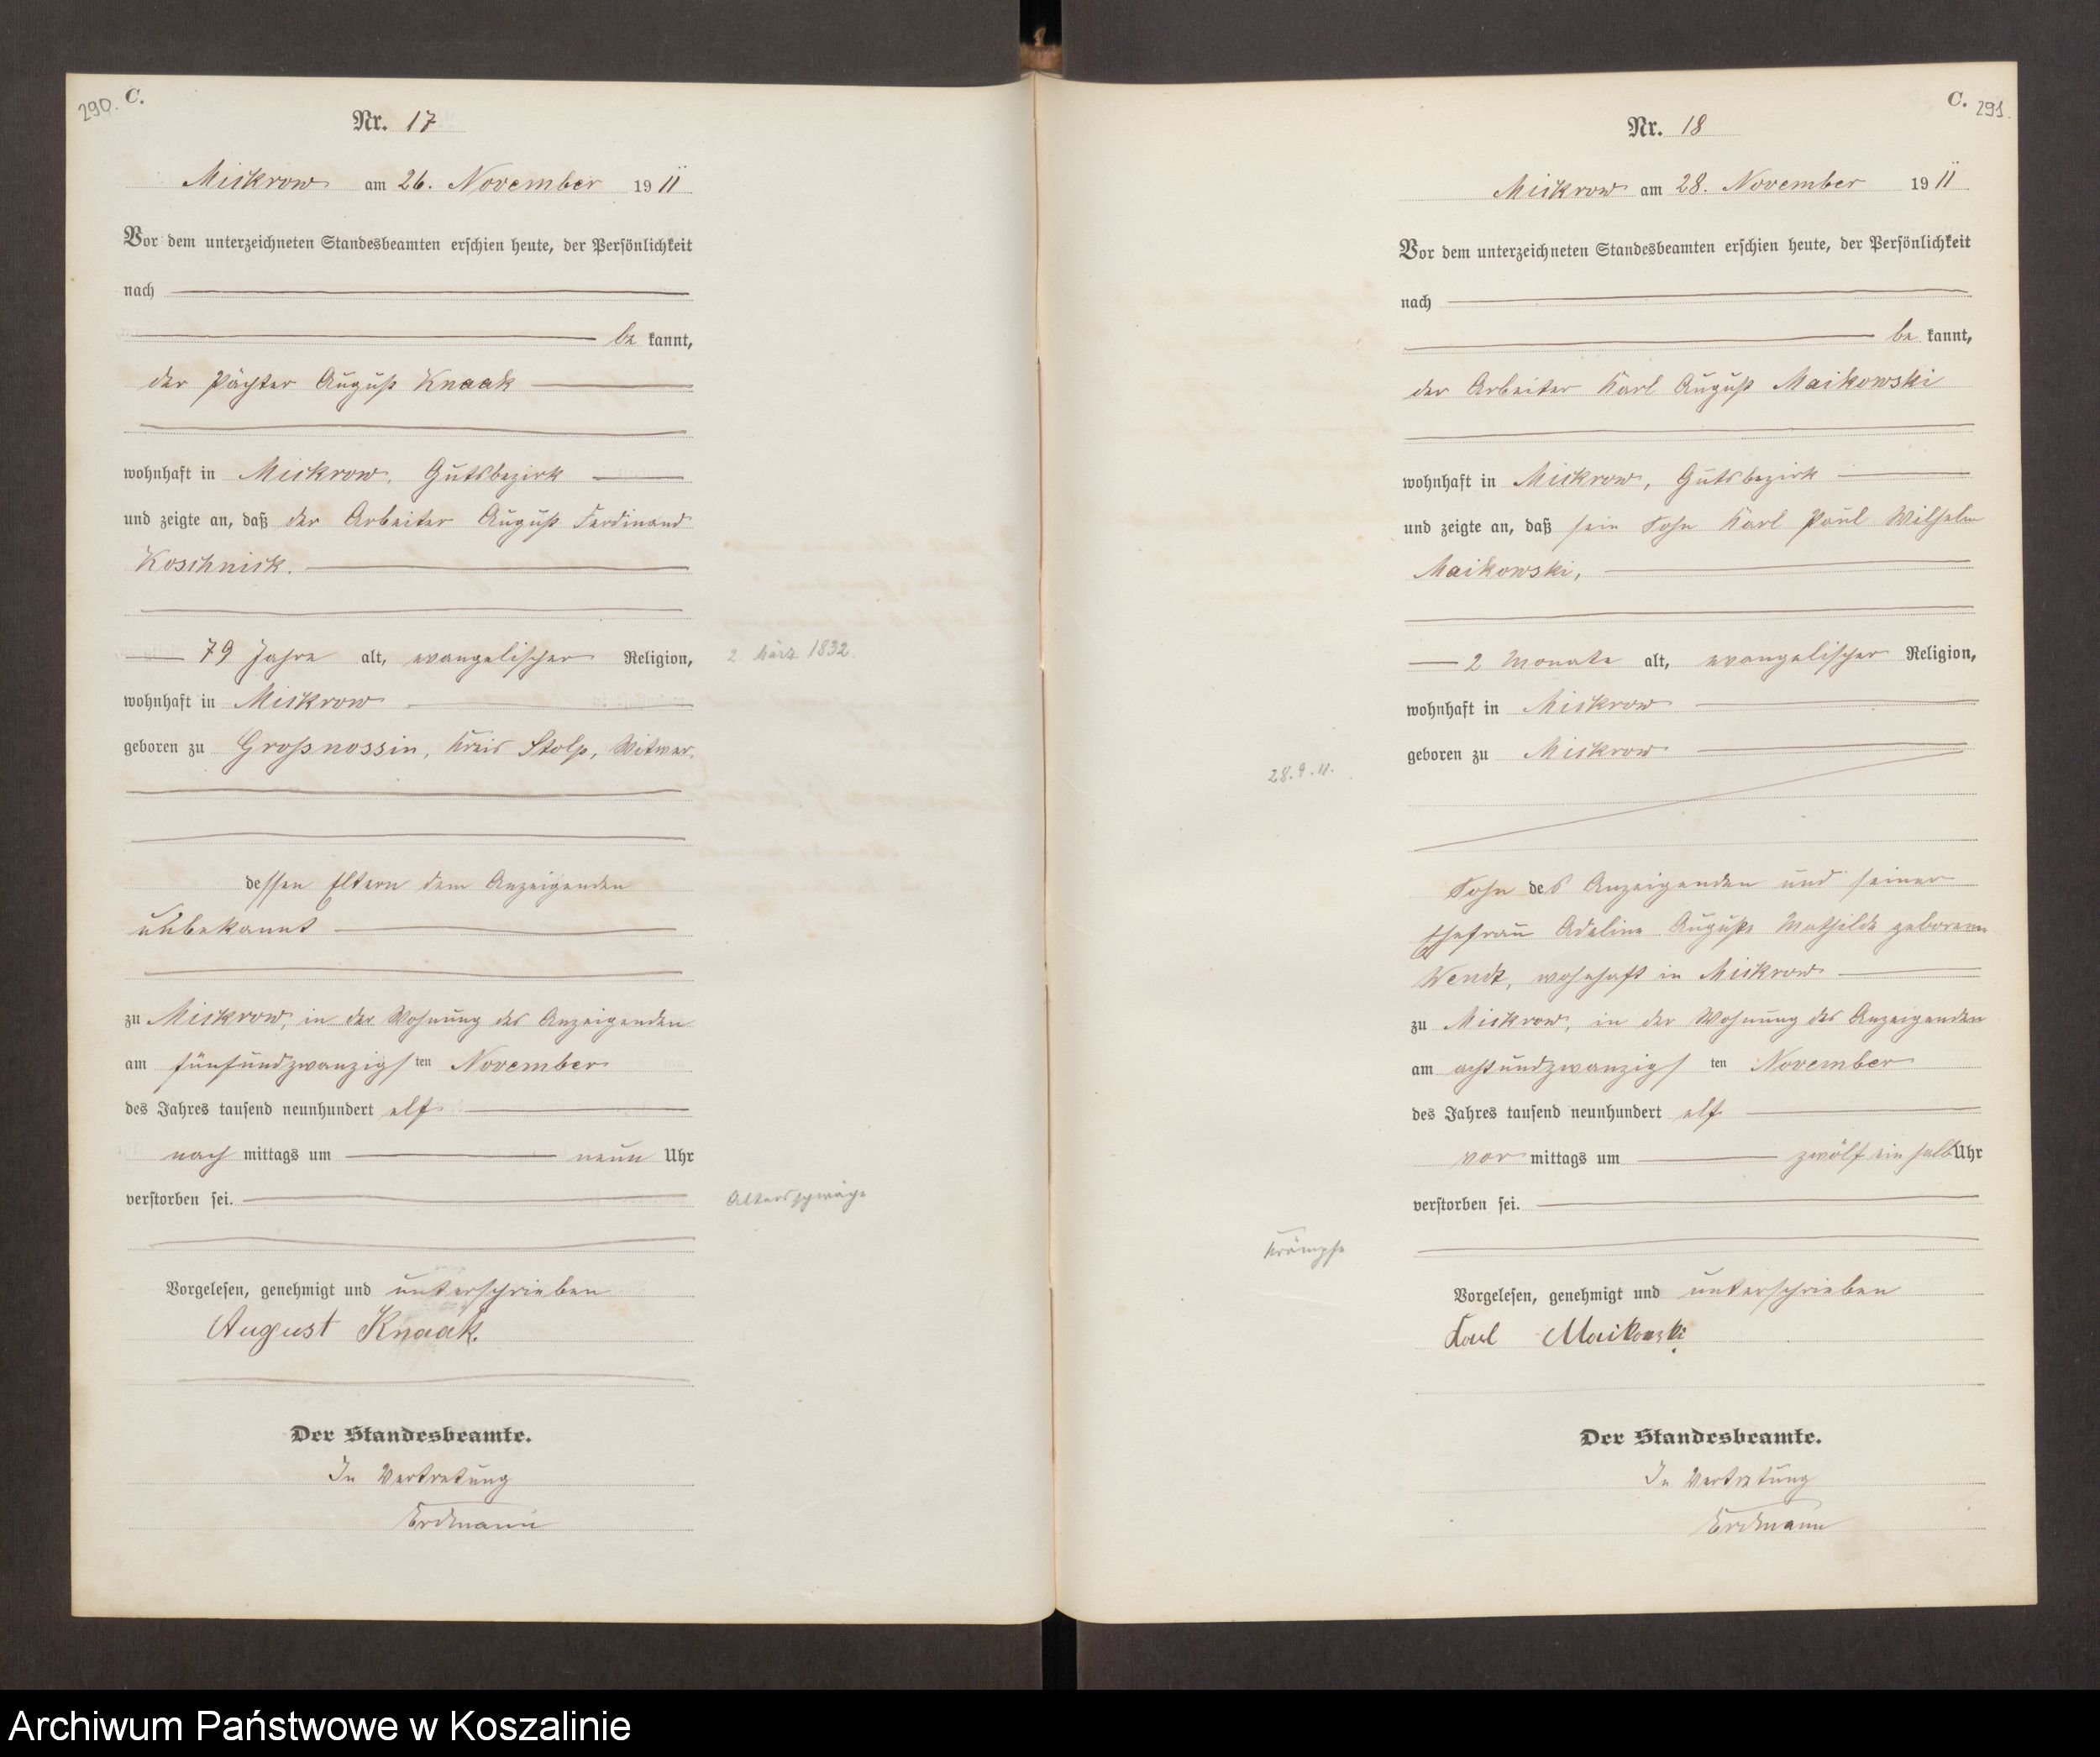 290. C.
Nr. 17
Mickrow am 26. November 1911
Vor dem unterzeichneten Standesbeamten erschien heute, der Persönlichkeit
nach
be kannt,
der Pächter August Knaak
wohnhaft in Mickrow, Gutsbezirk
und zeigte an, daß der Arbeiter August Ferdinand
Koschnick.
79 Jahre alt, evangelischer Religion,
2. März 1832.
wohnhaft in Mickrow
geboren zu Großnossin, Kreis Stolp, Witwer.
dessen Eltern dem Anzeigenden
unbekannt
zu Mickrow, in der Wohnung des Anzeigenden
am fünfundzwanzigsten November
des Jahres tausend neunhundert elf
nach mittags um neun Uhr
verstorben sei.
Altersschwäche
Vorgelesen, genehmigt und unterschrieben
August Knaak.
Der Standesbeamte.
In Vertretung
Erdmann
C. 291.
Nr. 18
Mickrow am 28. November 1911
Vor dem unterzeichneten Standesbeamten erschien heute, der Persönlichkeit
nach
be kannt,
der Arbeiter Karl August Maikowski
wohnhaft in Mickrow, Gutsbezirk
und zeigte an, daß sein Sohn Karl Paul Wilhelm
Maikowski,
2 Monate alt, evangelischer Religion,
wohnhaft in Mickrow
geboren zu Mickrow
28.9.11.
Sohn des Anzeigenden und seiner
Ehefrau Adeline Auguste Mathilde geborenen
Wendt, wohnhaft in Mickrow
zu Mickrow, in der Wohnung des Anzeigenden
am achtundzwanzigsten November
des Jahres tausend neunhundert elf
vor mittags um zwölf ein halb Uhr
verstorben sei.
Krämpfe
Vorgelesen, genehmigt und unterschrieben
Karl Maikowski
Der Standesbeamte.
In Vertretung
Erdmann
Archiwum Państwowe w Koszalinie